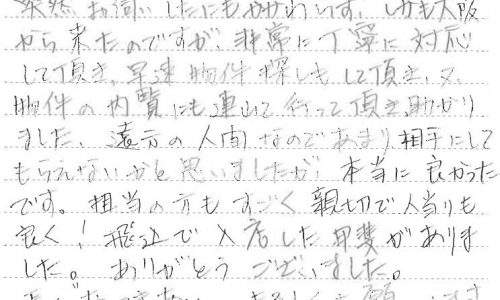 突然お伺いしたにもかかわらず、しかも大阪
から来たのですが、非常に丁寧に対応
して頂き、早速物件探しもして頂き、又、
物件の内覧にも連れて行って頂き、助かり
ました。遠方の人間なのであまり相手にして
もらえないかと思いましたが、本当に良かった
です。担当の方もすごく親切で人当りも
良く！飛込で入店した甲斐がありま
した。ありがとうございました。
願